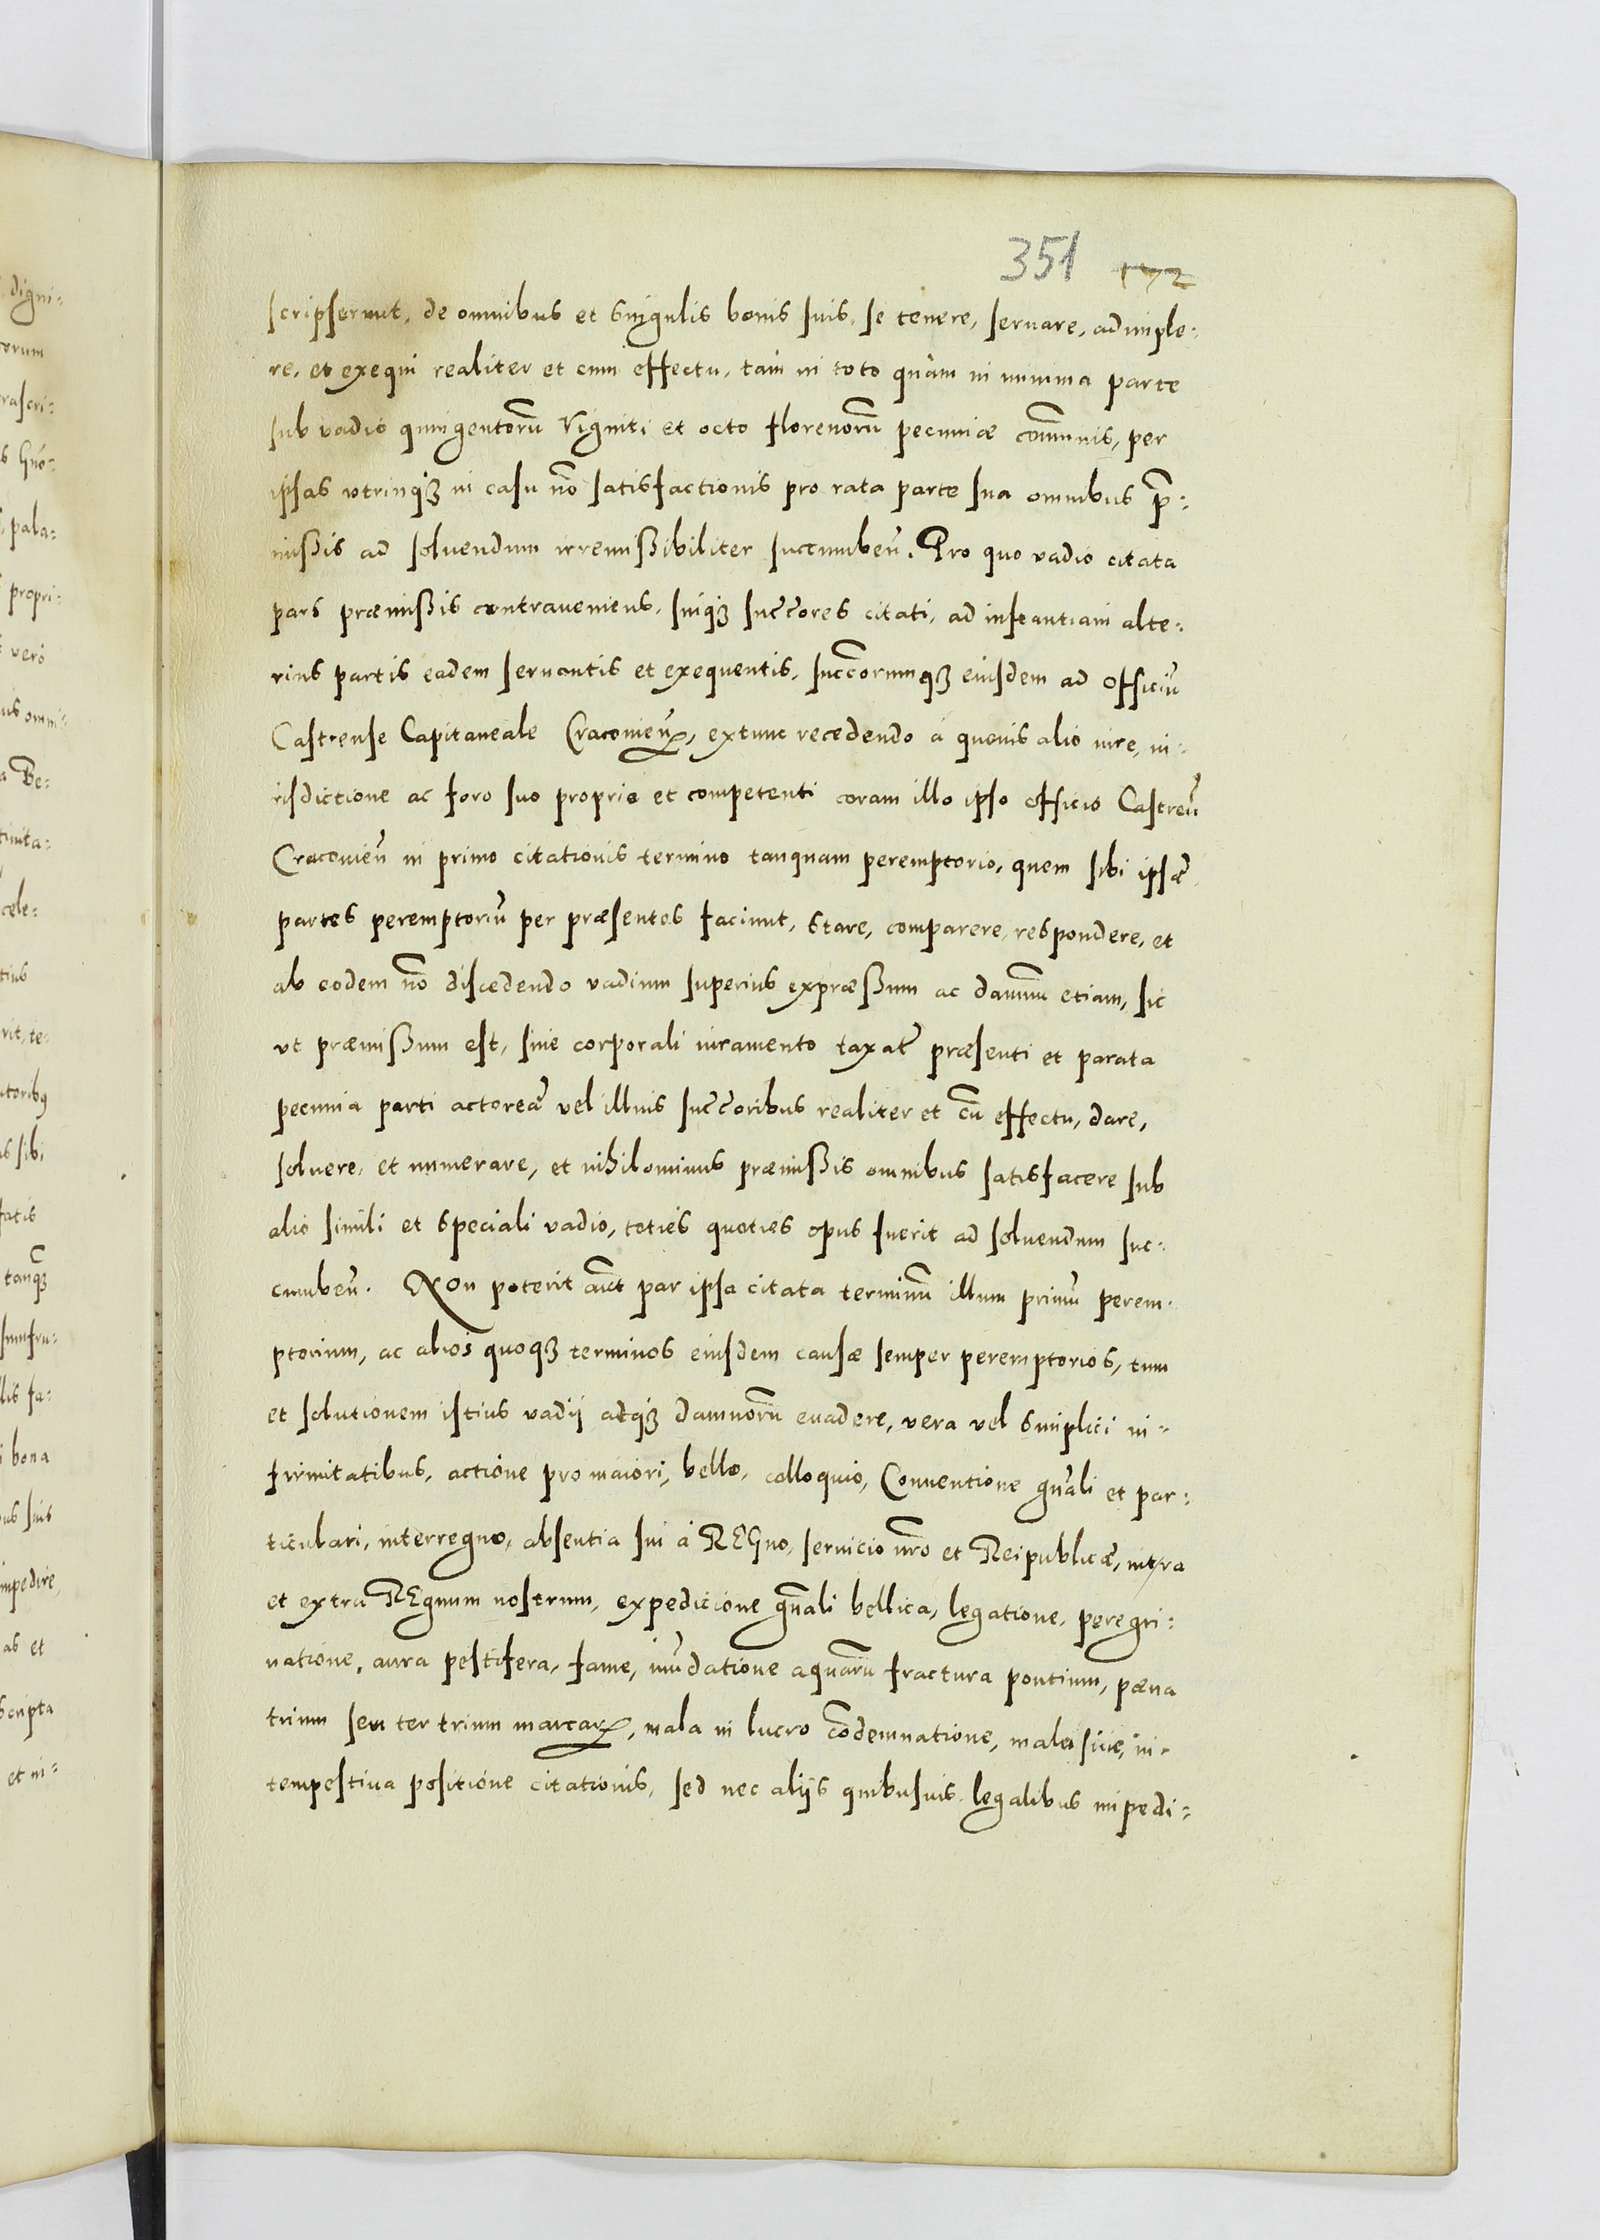 351 172
scripserunt, de omnibus et singulis bonis suis, se tenere, seruare, adimple-
re, et exequi realiter et cum effectu, tam in toto quàm in minima parte
sub vadio quingentorũ Viginti et octo florenorũ pecuniæ com̃unis, per
ipsas vtrinq3 in casu nõ satisfactionis pro rata parte sua omnibus p̃-
mißis ad soluendum irremißibiliter succumbeñ. Pro quo vadio citata
pars præmißis contraueniens, suiq3 succ̃ores citati, ad instantiam alte-
rius partis eadem seruantis et exequentis, succ̃orumq3 eiusdem ad officiũ
Castrense Capitaneale Cracouieñ, extunc recedendo à quouis alio iure, iu-
risdictione ac foro suo proprio et competenti coram illo ipso officio Castreñ
Cracouieñ in primo citationis termino tanquam peremptorio, quem sibi ipsæ
partes peremptoriũ per præsentes faciunt, stare, comparere, respondere, et
ab eodem nõ discedendo vadium superius expræßum ac damnũ etiam, sic
vt præmißum est, sine corporali iuramento taxat̃ præsenti et parata
pecunia parti actoreæ vel illius succ̃oribus realiter et cũ effectu, dare,
soluere, et numerare, et nihilominus præmißis omnibus satisfacere sub
alio simili et speciali vadio, toties quoties opus fuerit ad soluendum suc-
cumbeñ. Non poterit aũt par ipsa citata terminũ illum primũ perem-
ptorium, ac alios quoq3 terminos eiusdem causæ semper peremptorios, tum
et solutionem istius vadij atq3 damnorũ euadere, vera vel simplici in-
firmitatibus, actione pro maiori, bello, colloquio, Conuentione gñali et par-
ticulari, interregno, absentia sui à REGno, seruicio nr̃o et Reipublicæ, intra
et extra REgnum nostrum, expedicione gñali bellica, legatione, peregri-
natione, aura pestifera, fame, inũdatione aquarũ fractura pontium, pæna
trium seu ter trium marcarꝝ, mala in lucro cõdemnatione, male siue, in-
tempestiua positione citationis, sed nec alijs quibusuis legalibus impedi-
digni-
rascri-
pala-
propri-
verò
Be-
cele-
sibi
bona
impedire
et
scripta
et in-